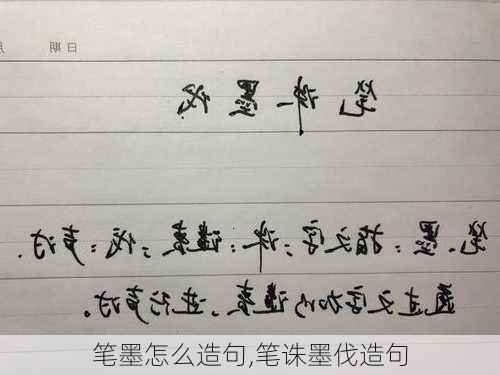 日期
笔诛墨伐
笔、墨：指文字；诛：谴责；伐：声讨.
通过文字加以谴责、进行声讨。
笔墨怎么造句,笔诛墨伐造句